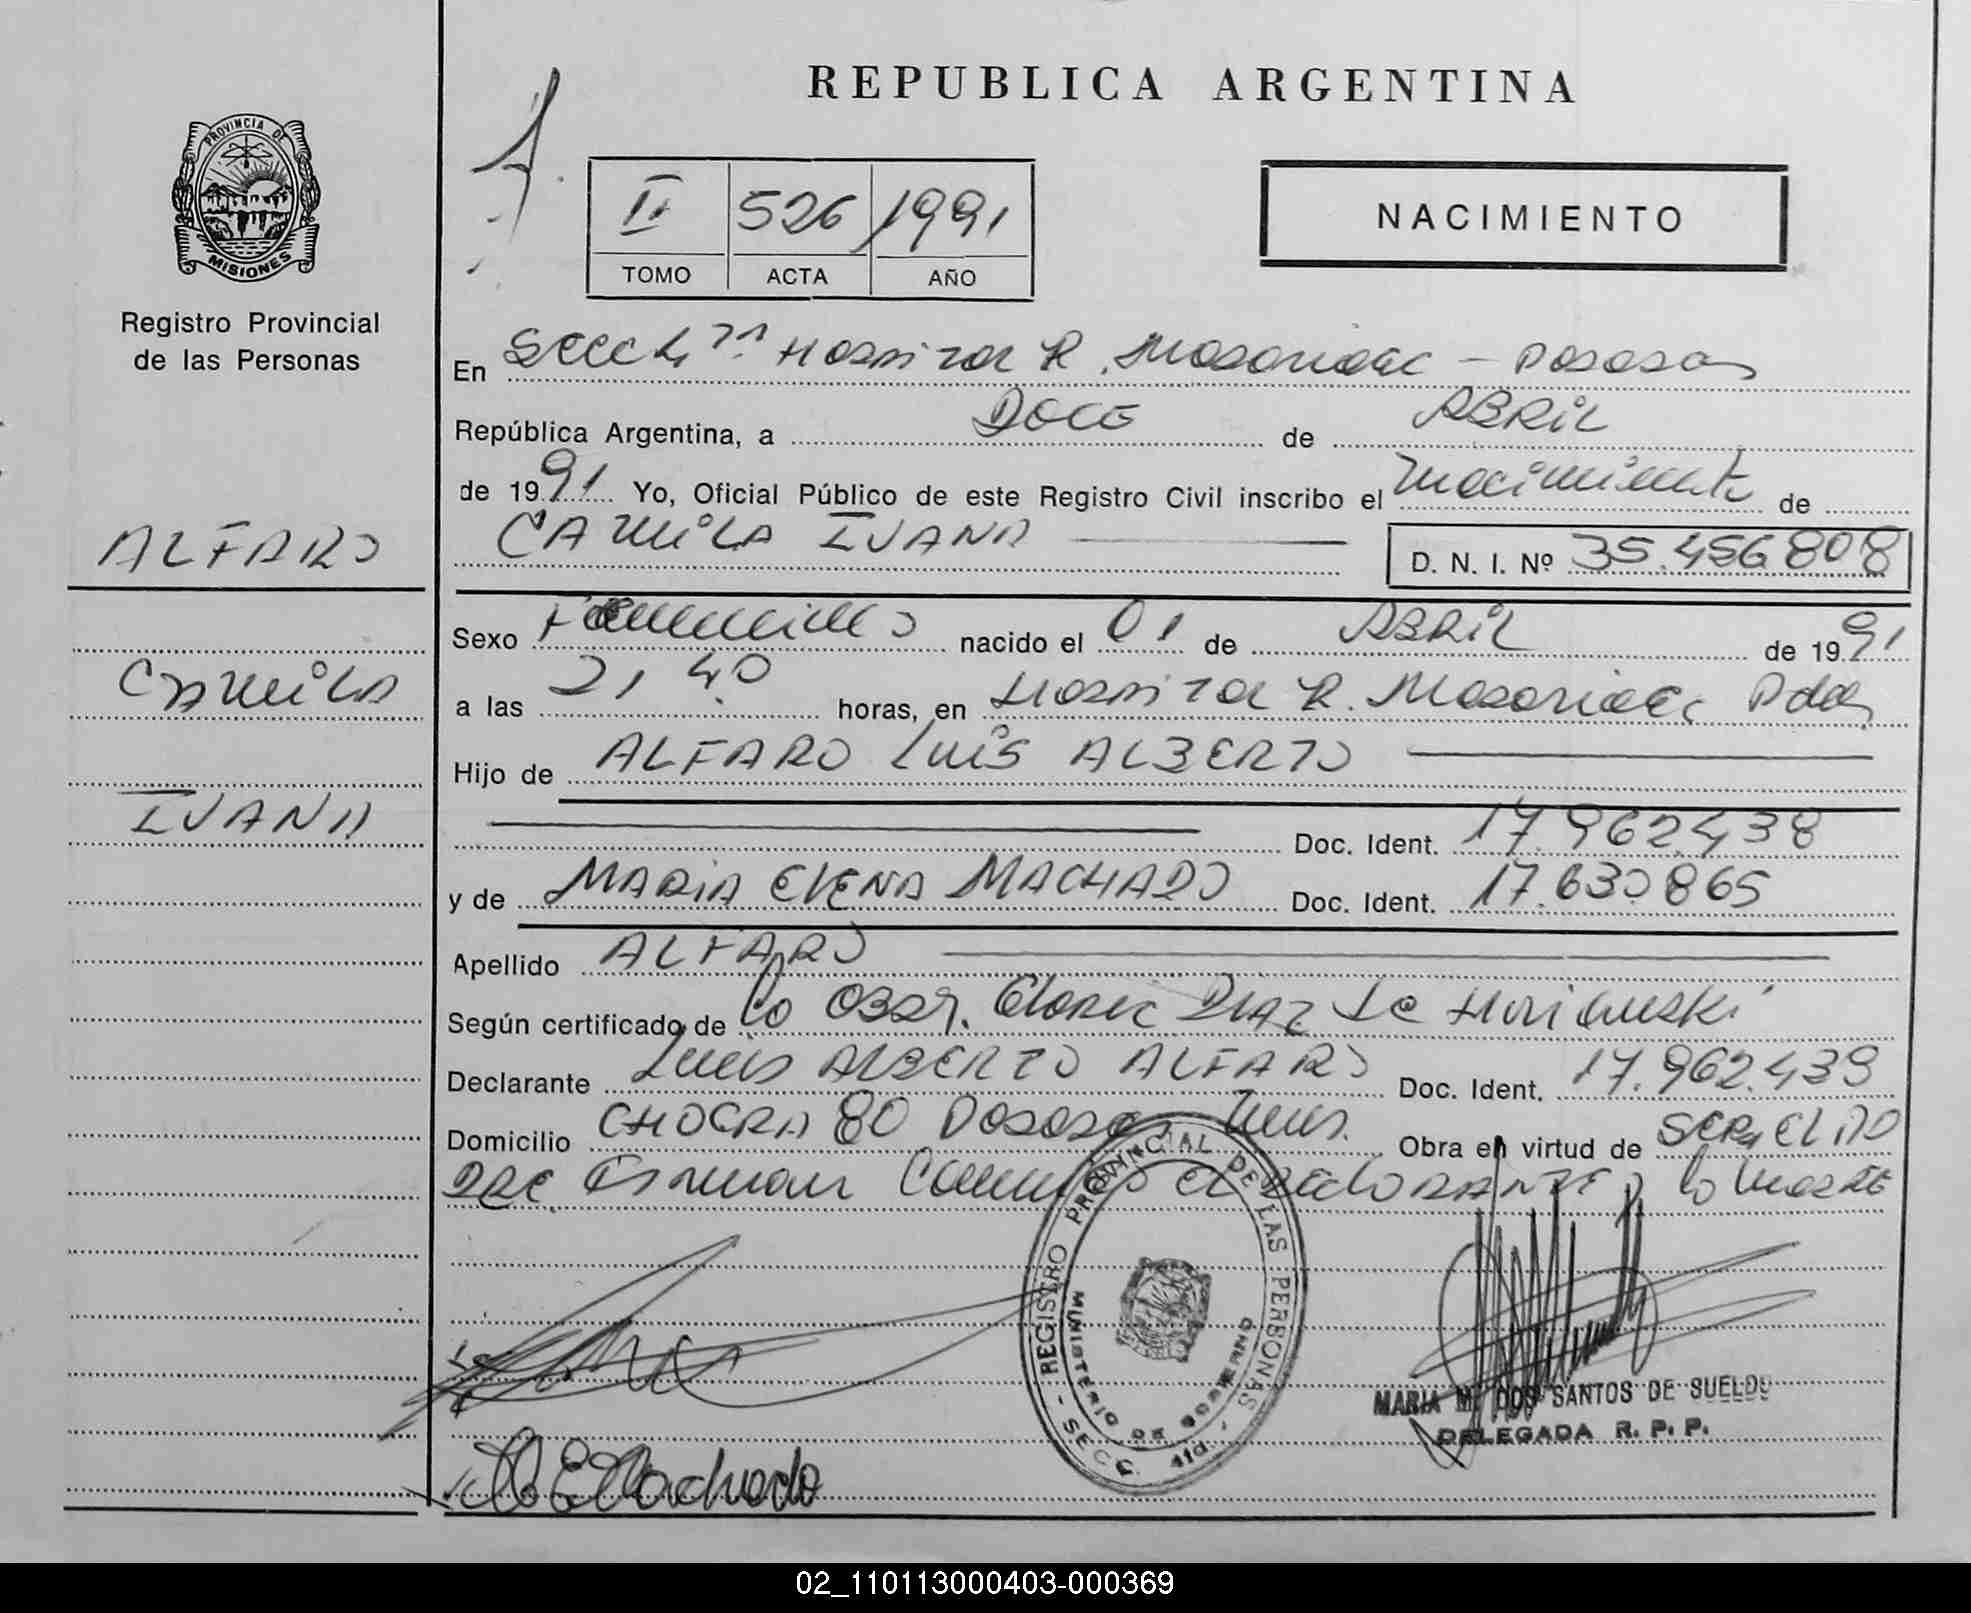 REPUBLICA ARGENTINA
PROVINCIA DE
MISIONES
Registro Provincial
de las Personas
II 526 1991
TOMO ACTA AÑO
NACIMIENTO
En Secc 4ta Hospital R. Madariaga - Posadas
República Argentina, a DOCE de ABRIL
de 1991 Yo, Oficial Público de este Registro Civil inscribo el nacimiento de
CAMILA IVANA D. N. I. Nº 35.456808
ALFARO
CAMILA
IVANA
Sexo Femenino nacido el 01 de ABRIL de 1991
a las 21,40 horas, en Hospital R. Madariaga Pdas
Hijo de ALFARO LUIS ALBERTO
Doc. Ident. 17.962.438
y de MARIA ELENA MACHADO Doc. Ident. 17.630865
Apellido ALFARO
Según certificado de la Obst. DIAZ de
Declarante LUIS ALBERTO ALFARO Doc. Ident. 17.962.439
Domicilio CHACRA 80 Posadas Mnes. Obra en virtud de SER EL PADRE
Firman el DECLARANTE y la MADRE
REGISTRO PROVINCIAL DE LAS PERSONAS
MINISTERIO DE GOBIERNO
- SECC. 4ta. -
MARIA M. DOS SANTOS DE SUELDO
DELEGADA R. P. P.
M E Machado
02_110113000403-000369